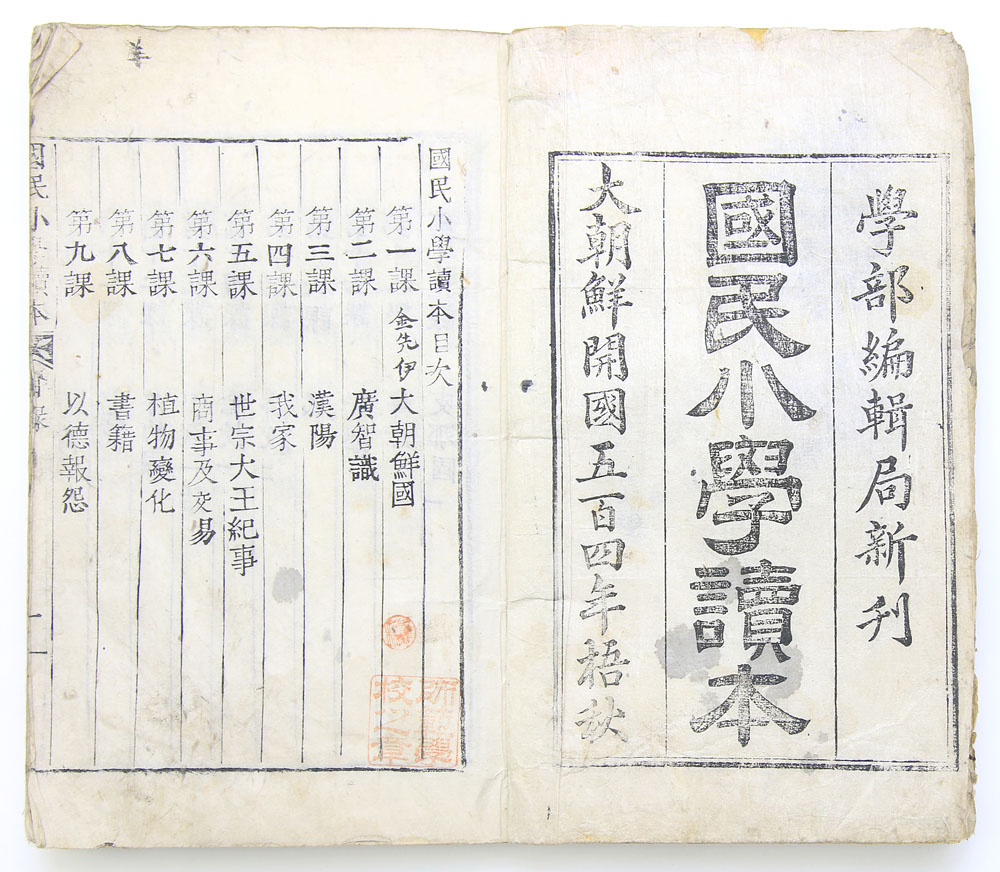 學部編輯局新刊
國民小學讀本
大朝鮮開國五百四年梧秋
國民小學讀本目次
第一課 大朝鮮國
金先伊
第二課 廣智識
第三課 漢陽
第四課 我家
第五課 世宗大王紀事
第六課 商事及交易
第七課 植物變化
第八課 書籍
第九課 以德報怨
國民小學讀本 目錄 一
師範學校之章